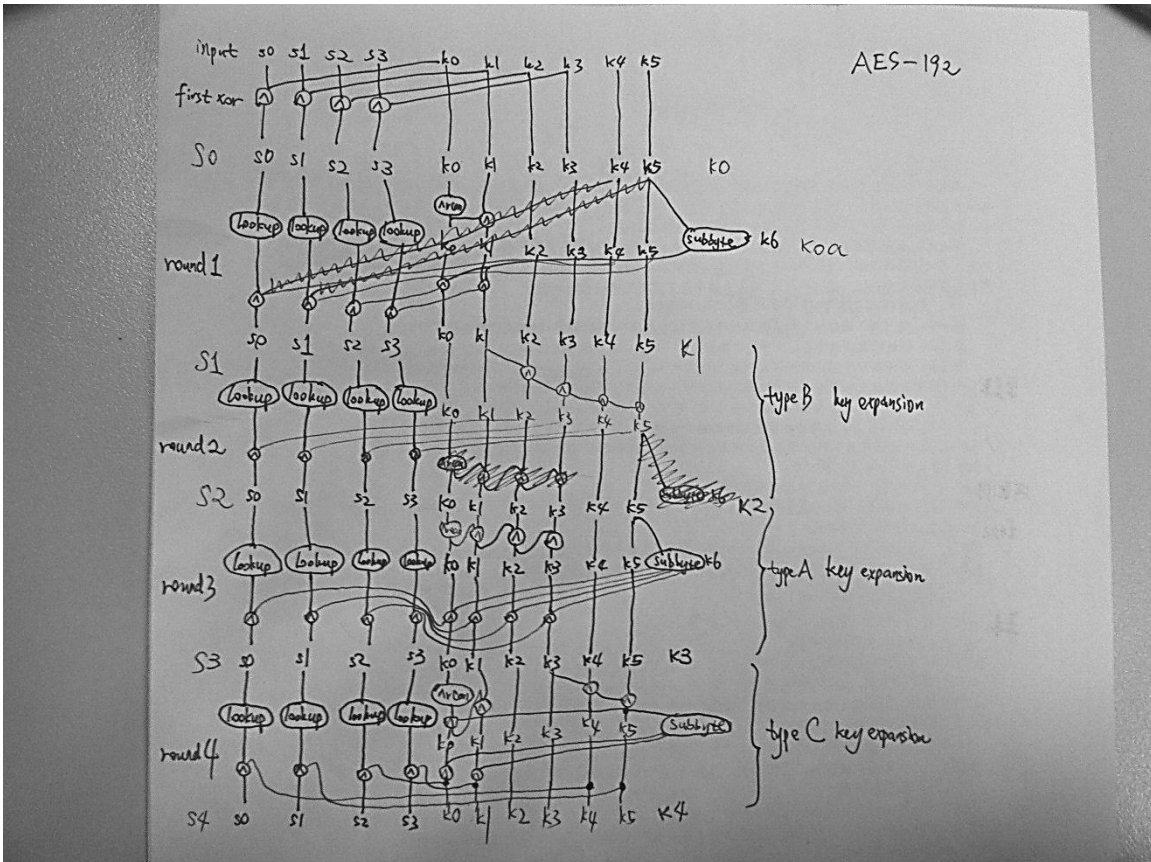 input s0 s1 s2 s3 k0 k1 k2 k3 k4 k5 AES-192
first xor ^ ^ ^ ^
S0 s0 s1 s2 s3 k0 k1 k2 k3 k4 k5 K0
^rcon ^
lookup lookup lookup lookup subbyte k6 K0a
round 1 k2 k3 k4 k5
^ ^ ^ ^ ^ ^
S1 s0 s1 s2 s3 k0 k1 k2 k3 k4 k5 K1
^ ^ ^ ^
lookup lookup lookup lookup type B key expansion
k0 k1 k2 k3 k4 k5
round 2 ^ ^ ^ ^
S2 s0 s1 s2 s3 k0 k1 k2 k3 k4 k5 K2
^rcon ^ ^ ^
lookup lookup lookup lookup k0 k1 k2 k3 k4 k5 subbyte k6 type A key expansion
round 3
^ ^ ^ ^ ^ ^ ^ ^
S3 s0 s1 s2 s3 k0 k1 k2 k3 k4 k5 K3
^rcon ^ ^ ^
lookup lookup lookup lookup ^ subbyte type C key expansion
k0 k1 k2 k3 k4 k5
round 4 ^ ^ ^ ^ ^ ^
S4 s0 s1 s2 s3 k0 k1 k2 k3 k4 k5 K4